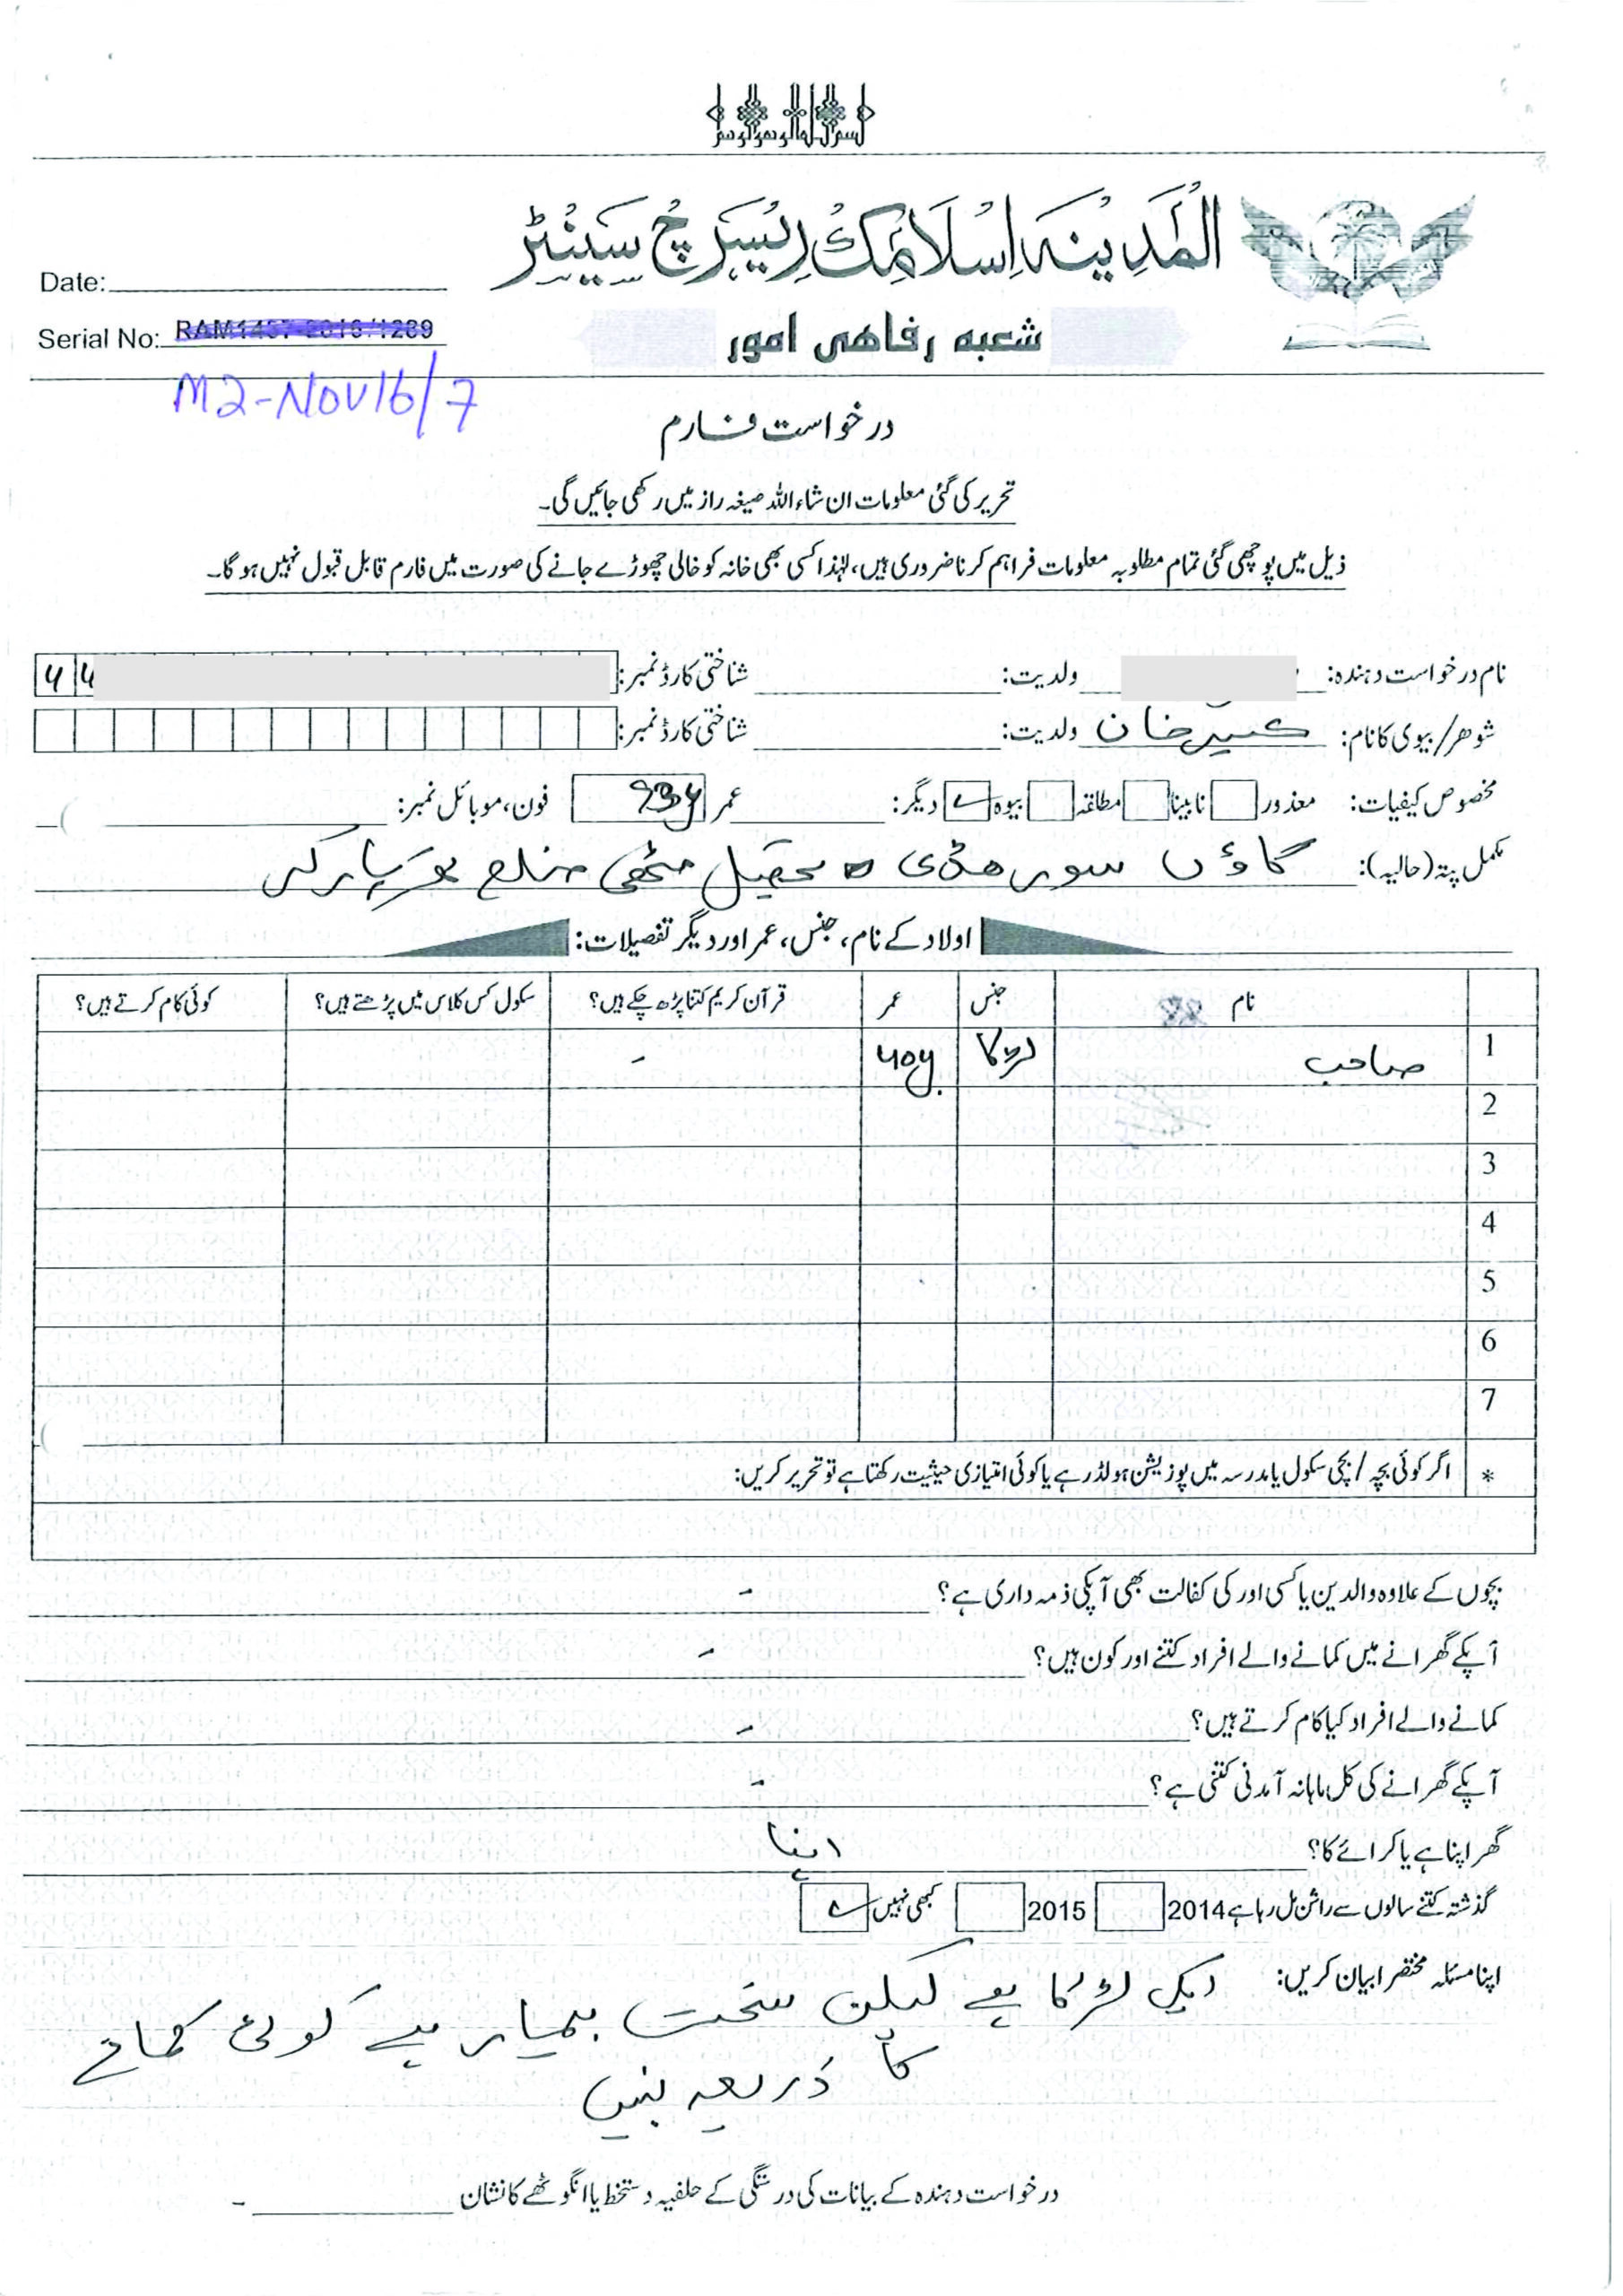 بسم اللہ الرحمن الرحیم
المدینہ اسلامک ریسرچ سینٹر
Date:
شعبہ رفاهی امور
Serial No: RAM1437-2016/1289
M2-Nov16/7
درخواست فارم
تحریر کی گئی معلومات ان شاء اللہ صیغہ راز میں رکھی جائیں گی۔
ذیل میں پوچھی گئی تمام مطلوبہ معلومات فراہم کرنا ضروری ہیں، لہٰذا کسی بھی خانہ کو خالی چھوڑے جانے کی صورت میں فارم قابل قبول نہیں ہو گا۔
نام درخواست دہندہ: ولدیت: شناختی کارڈ نمبر: 44
شوهر/بیوی کا نام: خان ولدیت: شناختی کارڈ نمبر:
مخصوص کیفیات: معذور نابینا مطلقہ بیوہ دیگر: عمر 93y فون، موبائل نمبر:
مکمل پتہ (حالیہ): گاؤں تحصیل مٹھی ضلع تھرپارکر
اولاد کے نام، جنس، عمر اور دیگر تفصیلات:
نام جنس عمر قرآن کریم کتنا پڑھ چکے ہیں؟ سکول کس کلاس میں پڑھتے ہیں؟ کوئی کام کرتے ہیں؟
1 صاحب لڑکا 40y. -
2
3
4
5
6
7
* اگر کوئی بچہ / بچی سکول یا مدرسہ میں پوزیشن ہولڈر ہے یا کوئی امتیازی حیثیت رکھتا ہے تو تحریر کریں:
بچوں کے علاوہ والدین یا کسی اور کی کفالت بھی آپکی ذمہ داری ہے؟ -
آپکے گھرانے میں کمانے والے افراد کتنے اور کون ہیں؟ -
کمانے والے افراد کیا کام کرتے ہیں؟ -
آپکے گھرانے کی کل ماہانہ آمدنی کتنی ہے؟ -
گھر اپنا ہے یا کرائے کا؟ اپنا
گذشتہ کتنے سالوں سے راشن مل رہا ہے 2014 2015 کبھی نہیں
اپنا مسئلہ مختصرا بیان کریں: ایک لڑکا ہے لیکن سخت بیمار ہے کوئی کمانے
کا ذریعہ نہیں
درخواست دہندہ کے بیانات کی درستگی کے حلفیہ دستخط یا انگوٹھے کا نشان